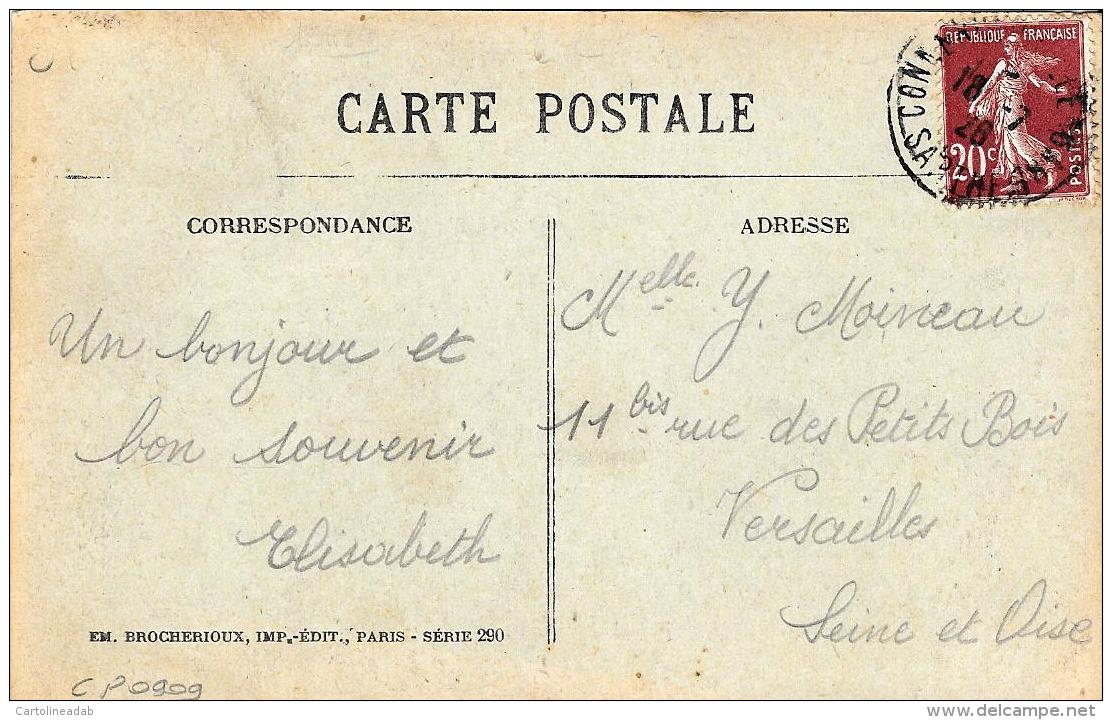 CARTE POSTALE
RÉPUBLIQUE FRANÇAISE
18 -7
26
20c
POSTES
CORRESPONDANCE
Un bonjour et
bon souvenir
Elisabeth
EM. BROCHERIOUX, IMP.-ÉDIT., PARIS - SÉRIE 290
CP0909
ADRESSE
Melle. Y. Moineau
11 bis rue des Petits Bois
Versailles
Seine et Oise
© Cartolineadab
www.delcampe.net